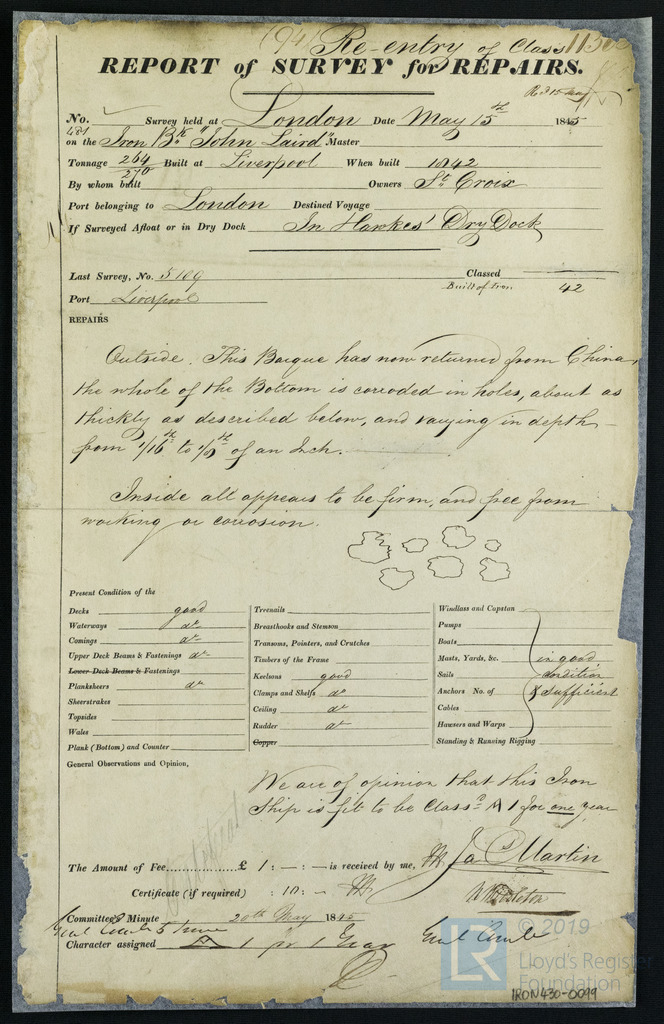 (94) Re-entry of Class 11300
REPORT of SURVEY for REPAIRS.
No. Survey held at London Date May 15th 1845
481
on the Iron Bk "John Laird" Master
Tonnage 264/270 Built at Liverpool When built 1842
By whom built Owners St Croix
Port belonging to London Destined Voyage
If Surveyed Afloat or in Dry Dock In Hawkes' Dry Dock
Last Survey, No. 5109 Classed
Built of Iron 42
Port Liverpool
REPAIRS
Outside. This Barque has now returned from China,
the whole of the Bottom is corroded in holes, about as
thickly as described below, and varying in depth
from 1/16th to 1/8th of an Inch.
Inside all appears to be firm, and free from
working or corrosion.
Present Condition of the
Decks good
Waterways do
Comings do
Upper Deck Beams & Fastenings do
Lower Deck Beams & Fastenings
Planksheers do
Sheerstrakes
Topsides
Wales
Plank (Bottom) and Counter
Treenails
Breasthooks and Stemson
Transoms, Pointers, and Crutches
Timbers of the Frame
Keelsons good
Clamps and Shelfs do
Ceiling do
Rudder do
Copper
Windlass and Capstan
Pumps
Boats
Masts, Yards, &c. in good
Sails condition
Anchors No. of & sufficient
Cables
Hawsers and Warps
Standing & Running Rigging
General Observations and Opinion,
We are of opinion that this Iron
Ship is fit to be Classd A 1 for one year
The Amount of Fee £ 1 : - : - is received by me, Jas Martin
Certificate (if required) : 10 : -
Committee's Minute 20th May 1845
Character assigned A 1 for 1 Year
© 2019
LR
Lloyd's Register
Foundation
IRON430-0099